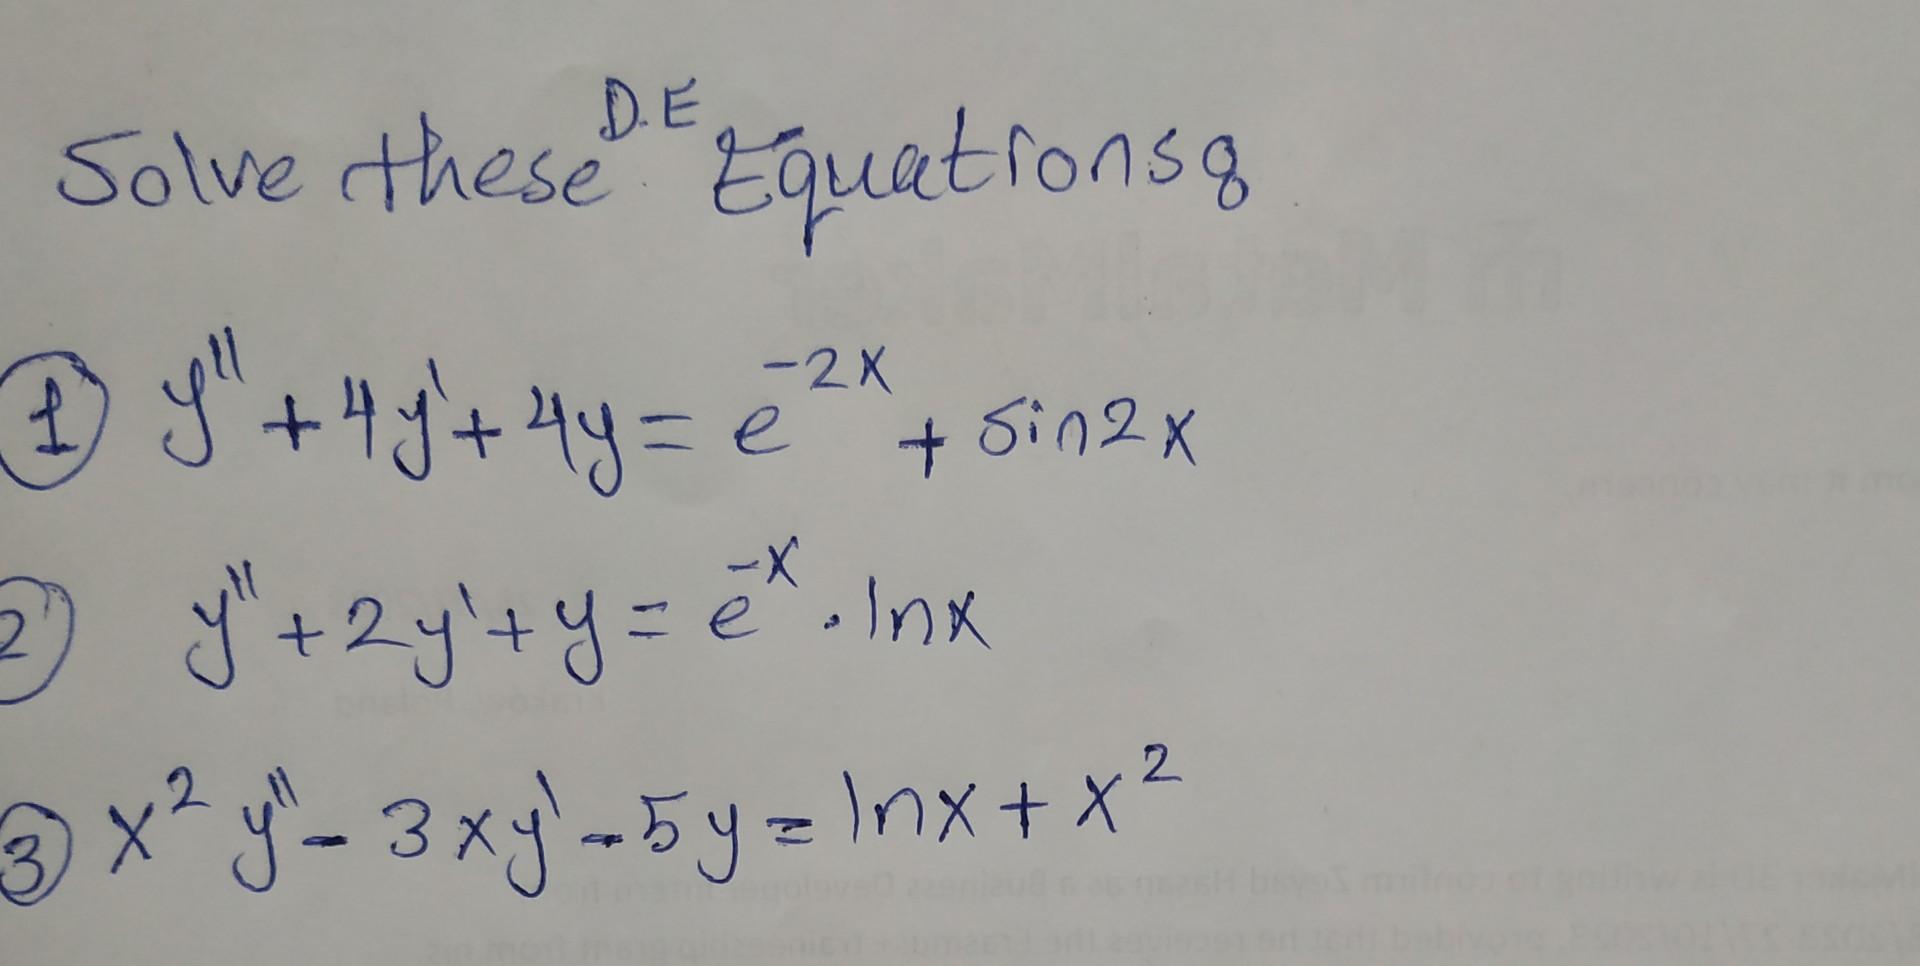 Solve these D.E Equations:
① y'' + 4y' + 4y = e^{-2x} + sin2x
② y'' + 2y' + y = e^{-x} . lnx
③ x² y'' - 3xy' - 5y = lnx + x²